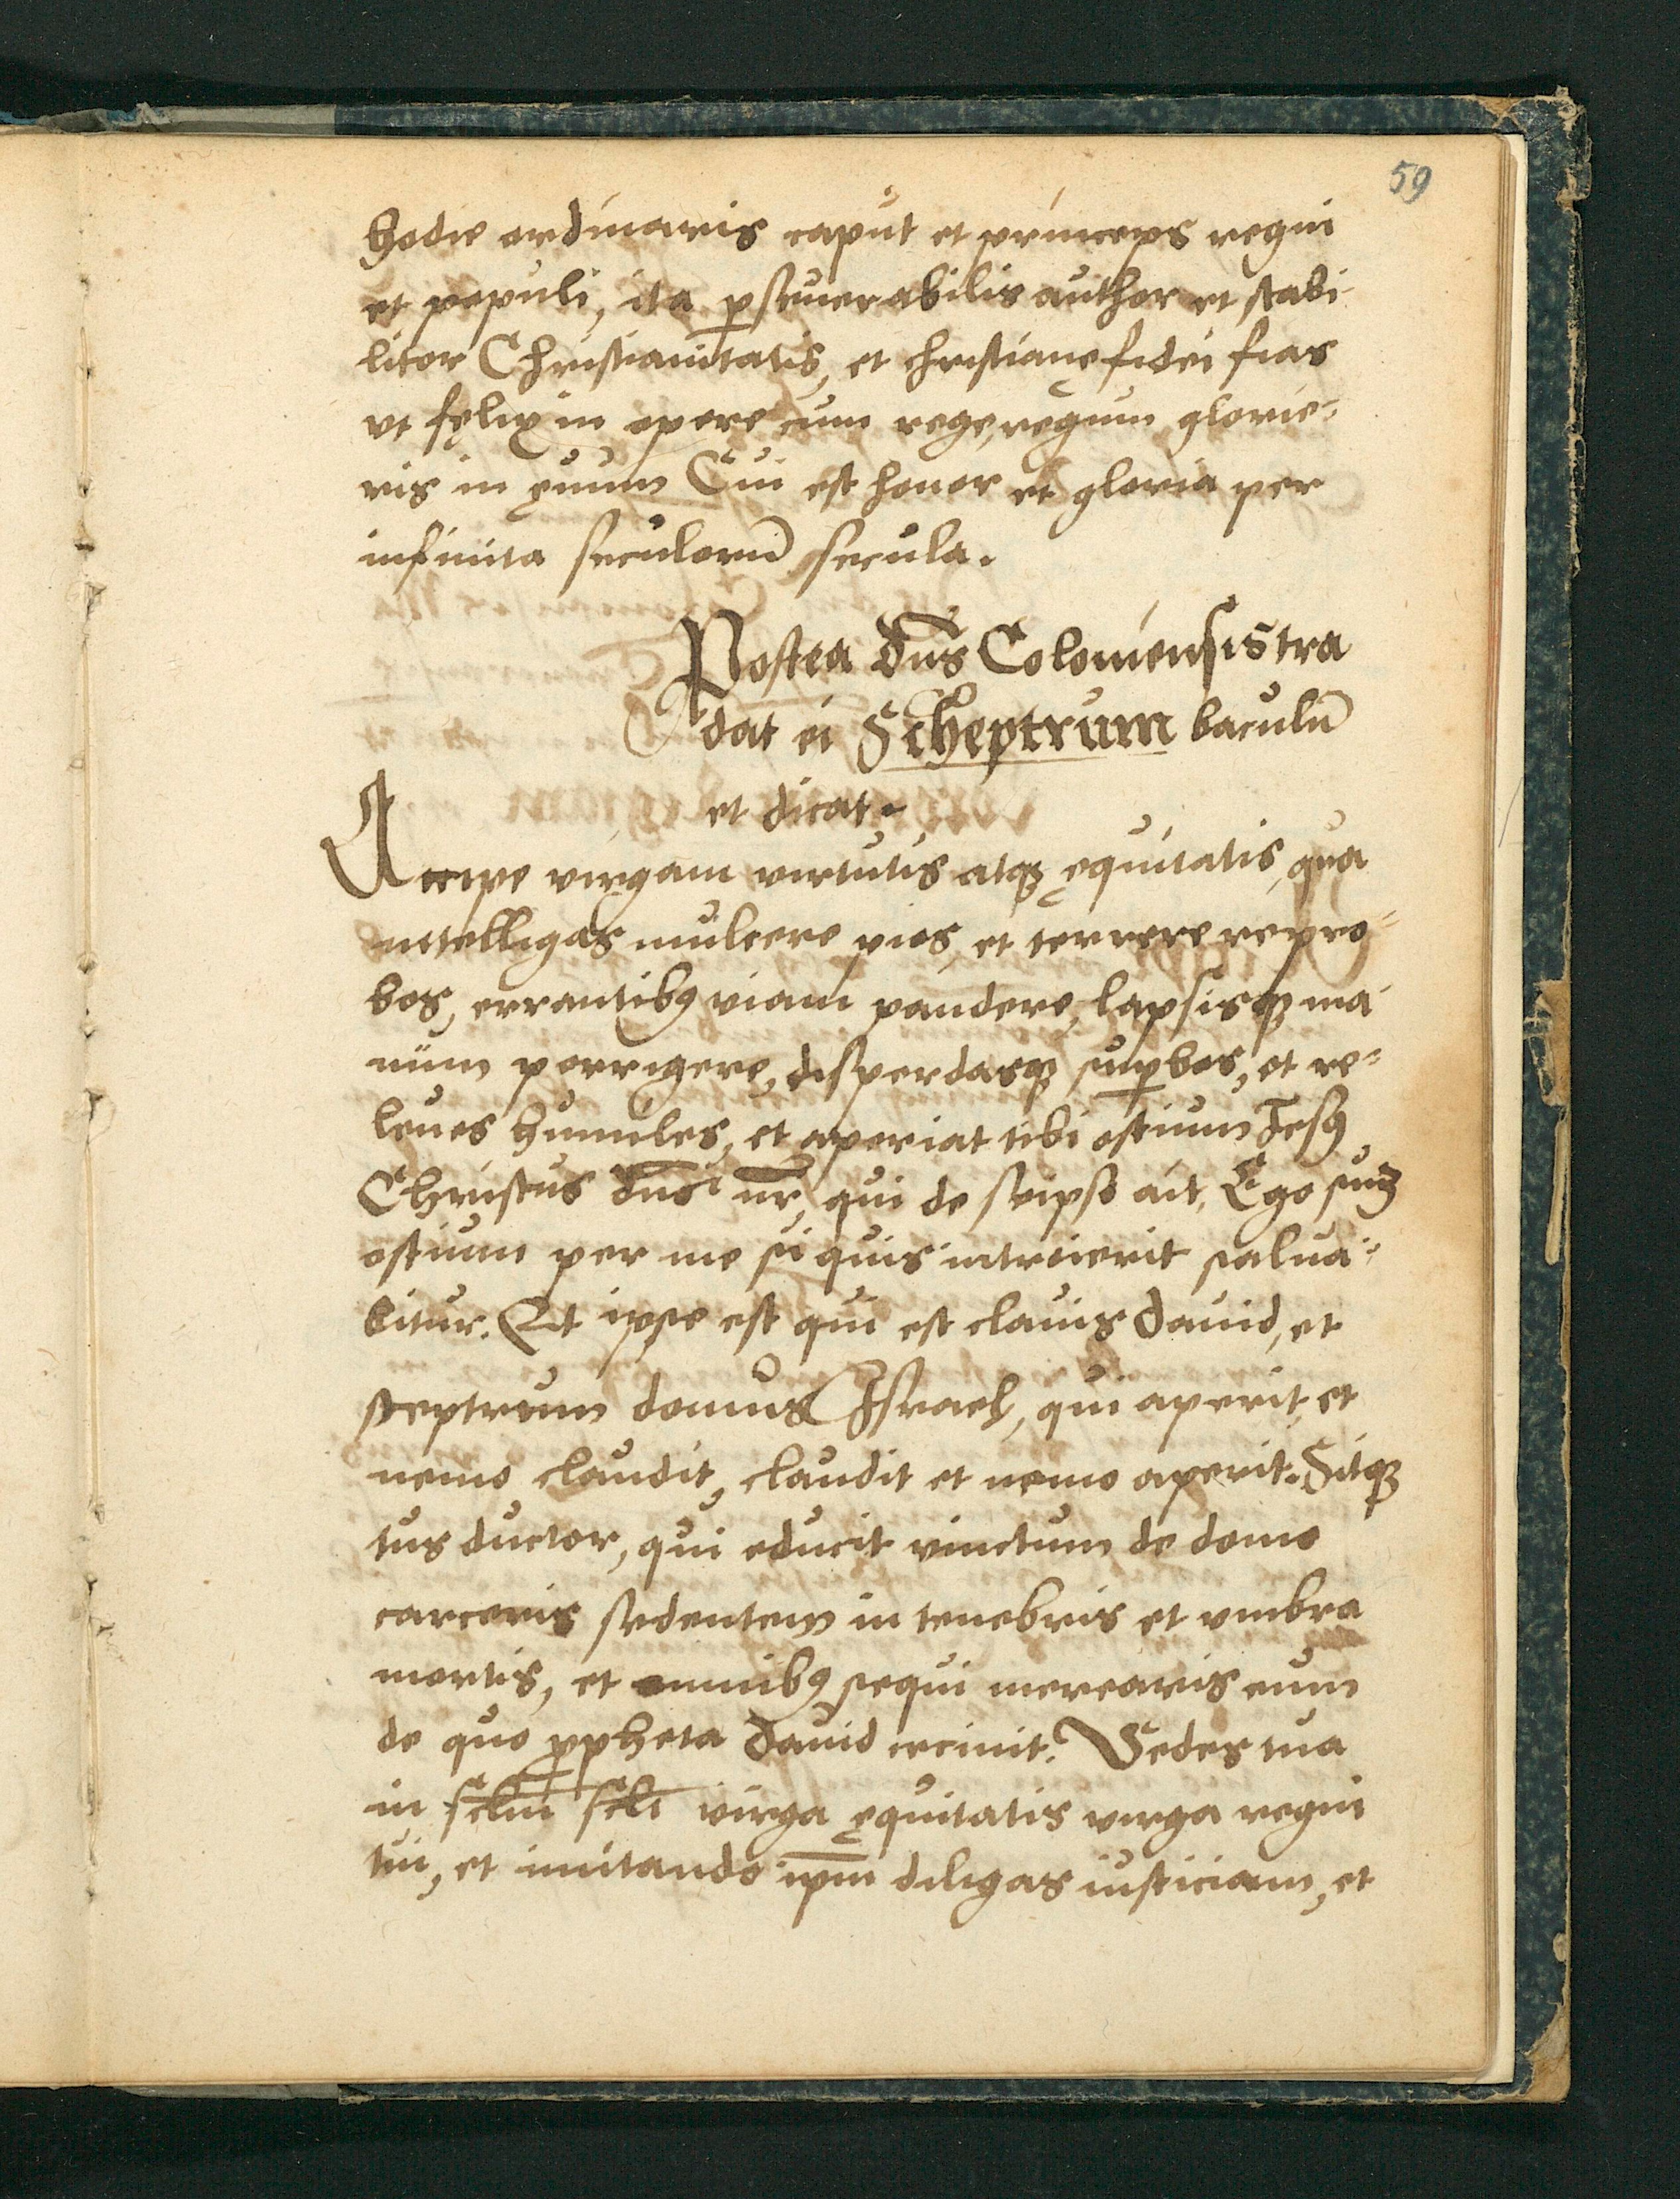 59
hodie ordinaris caput et princeps regni
et populi, ita ꝑseuerabilis author et stabi
litor Christianitatis, et christianę fidei fias
vt fęlix in opere cum rege regum glorie-
ris in ęuum Cui est honor et gloria per
infinita seculorū secula.
Postea dn̄s Coloniensis tra
dat ei Scheptrum baculū
et dicat.
Accipe virgam virtutis atqꝫ ęquitatis, qua
intelligas mulcere pios, et terrere repro-
bos, errantibꝰ viam pandere, lapsisqꝫ ma
num porrigere, disperdasqꝫ suꝑbos, et re-
leues humiles, et aperiat tibi ostium Jesꝰ
Christus dn̄s nr̄, qui de seipso ait, Ego sum
ostium per me si quis introierit salua-
bitur. Et ipse est qui est clauis Dauid, et
sceptrum domus Israel, qui aperit, et
nemo claudit, claudit et nemo aperit. Sitqꝫ
tus ductor, qui educit vinctum de domo
carceris sedentem in tenebris et vmbra
mortis, et omnibꝰ sequi merearis eum
de quo ꝓpheta Dauid cecinit. Sedes tua
in sclm̄ scl̄i virga ęquitatis virga regni
tui, et imitando ipm̄ diligas iusticiam, et